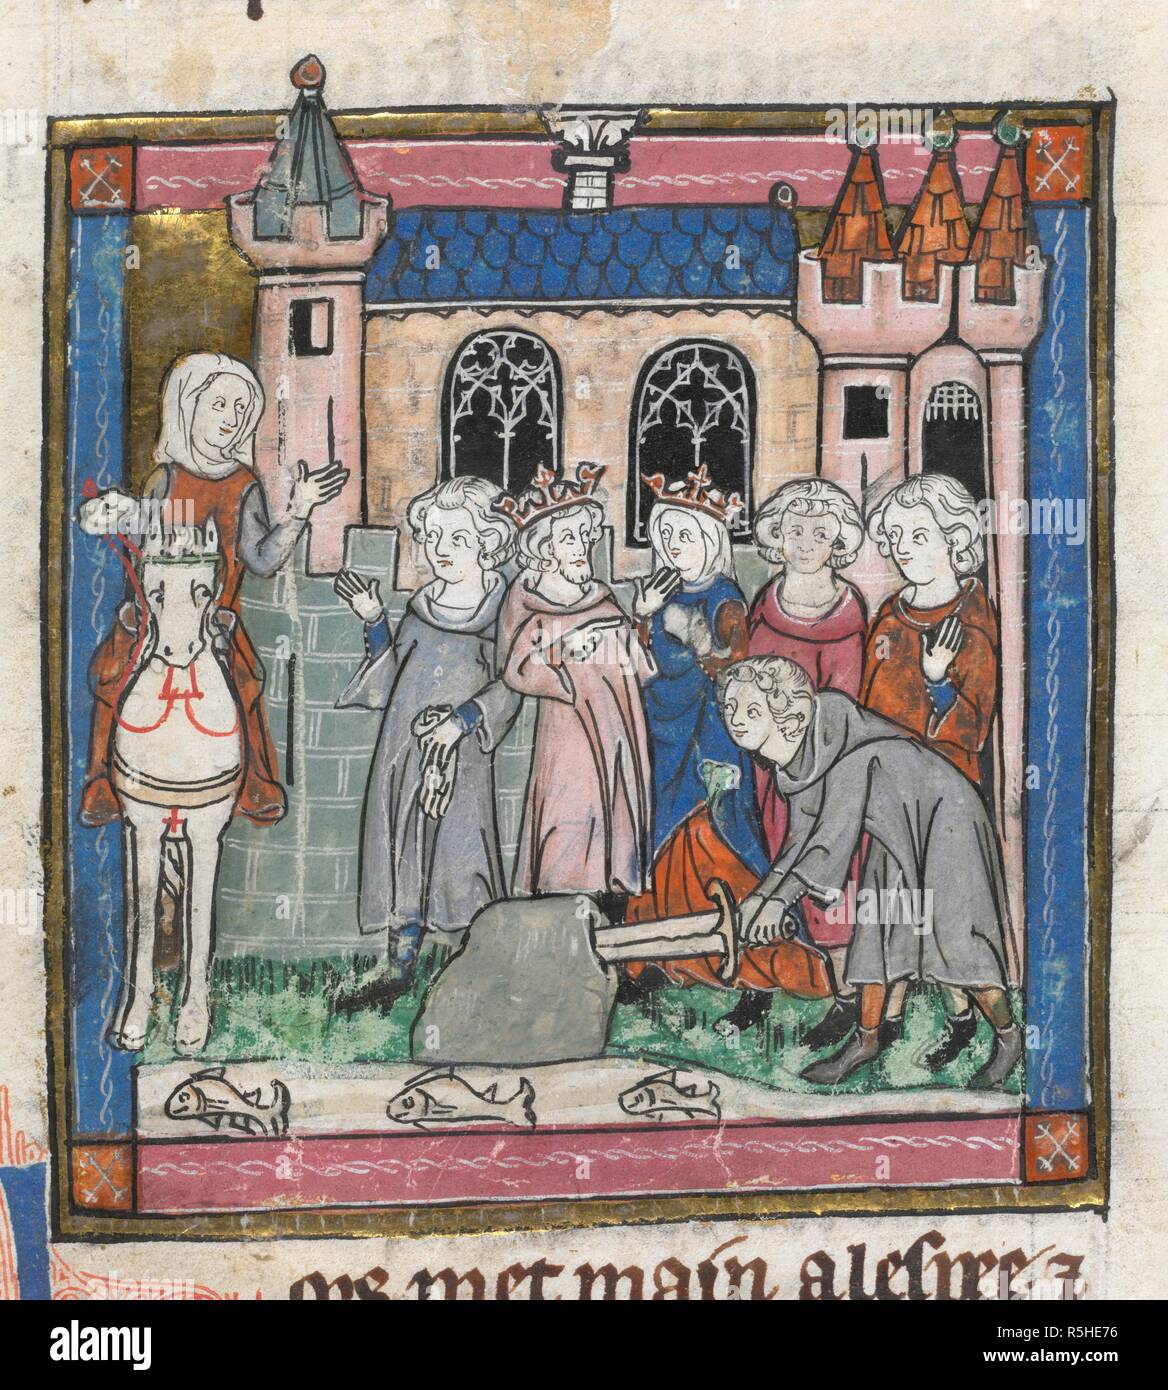 oys met main a lespee ⁊
alamy
Image ID: R5HE76
www.alamy.com